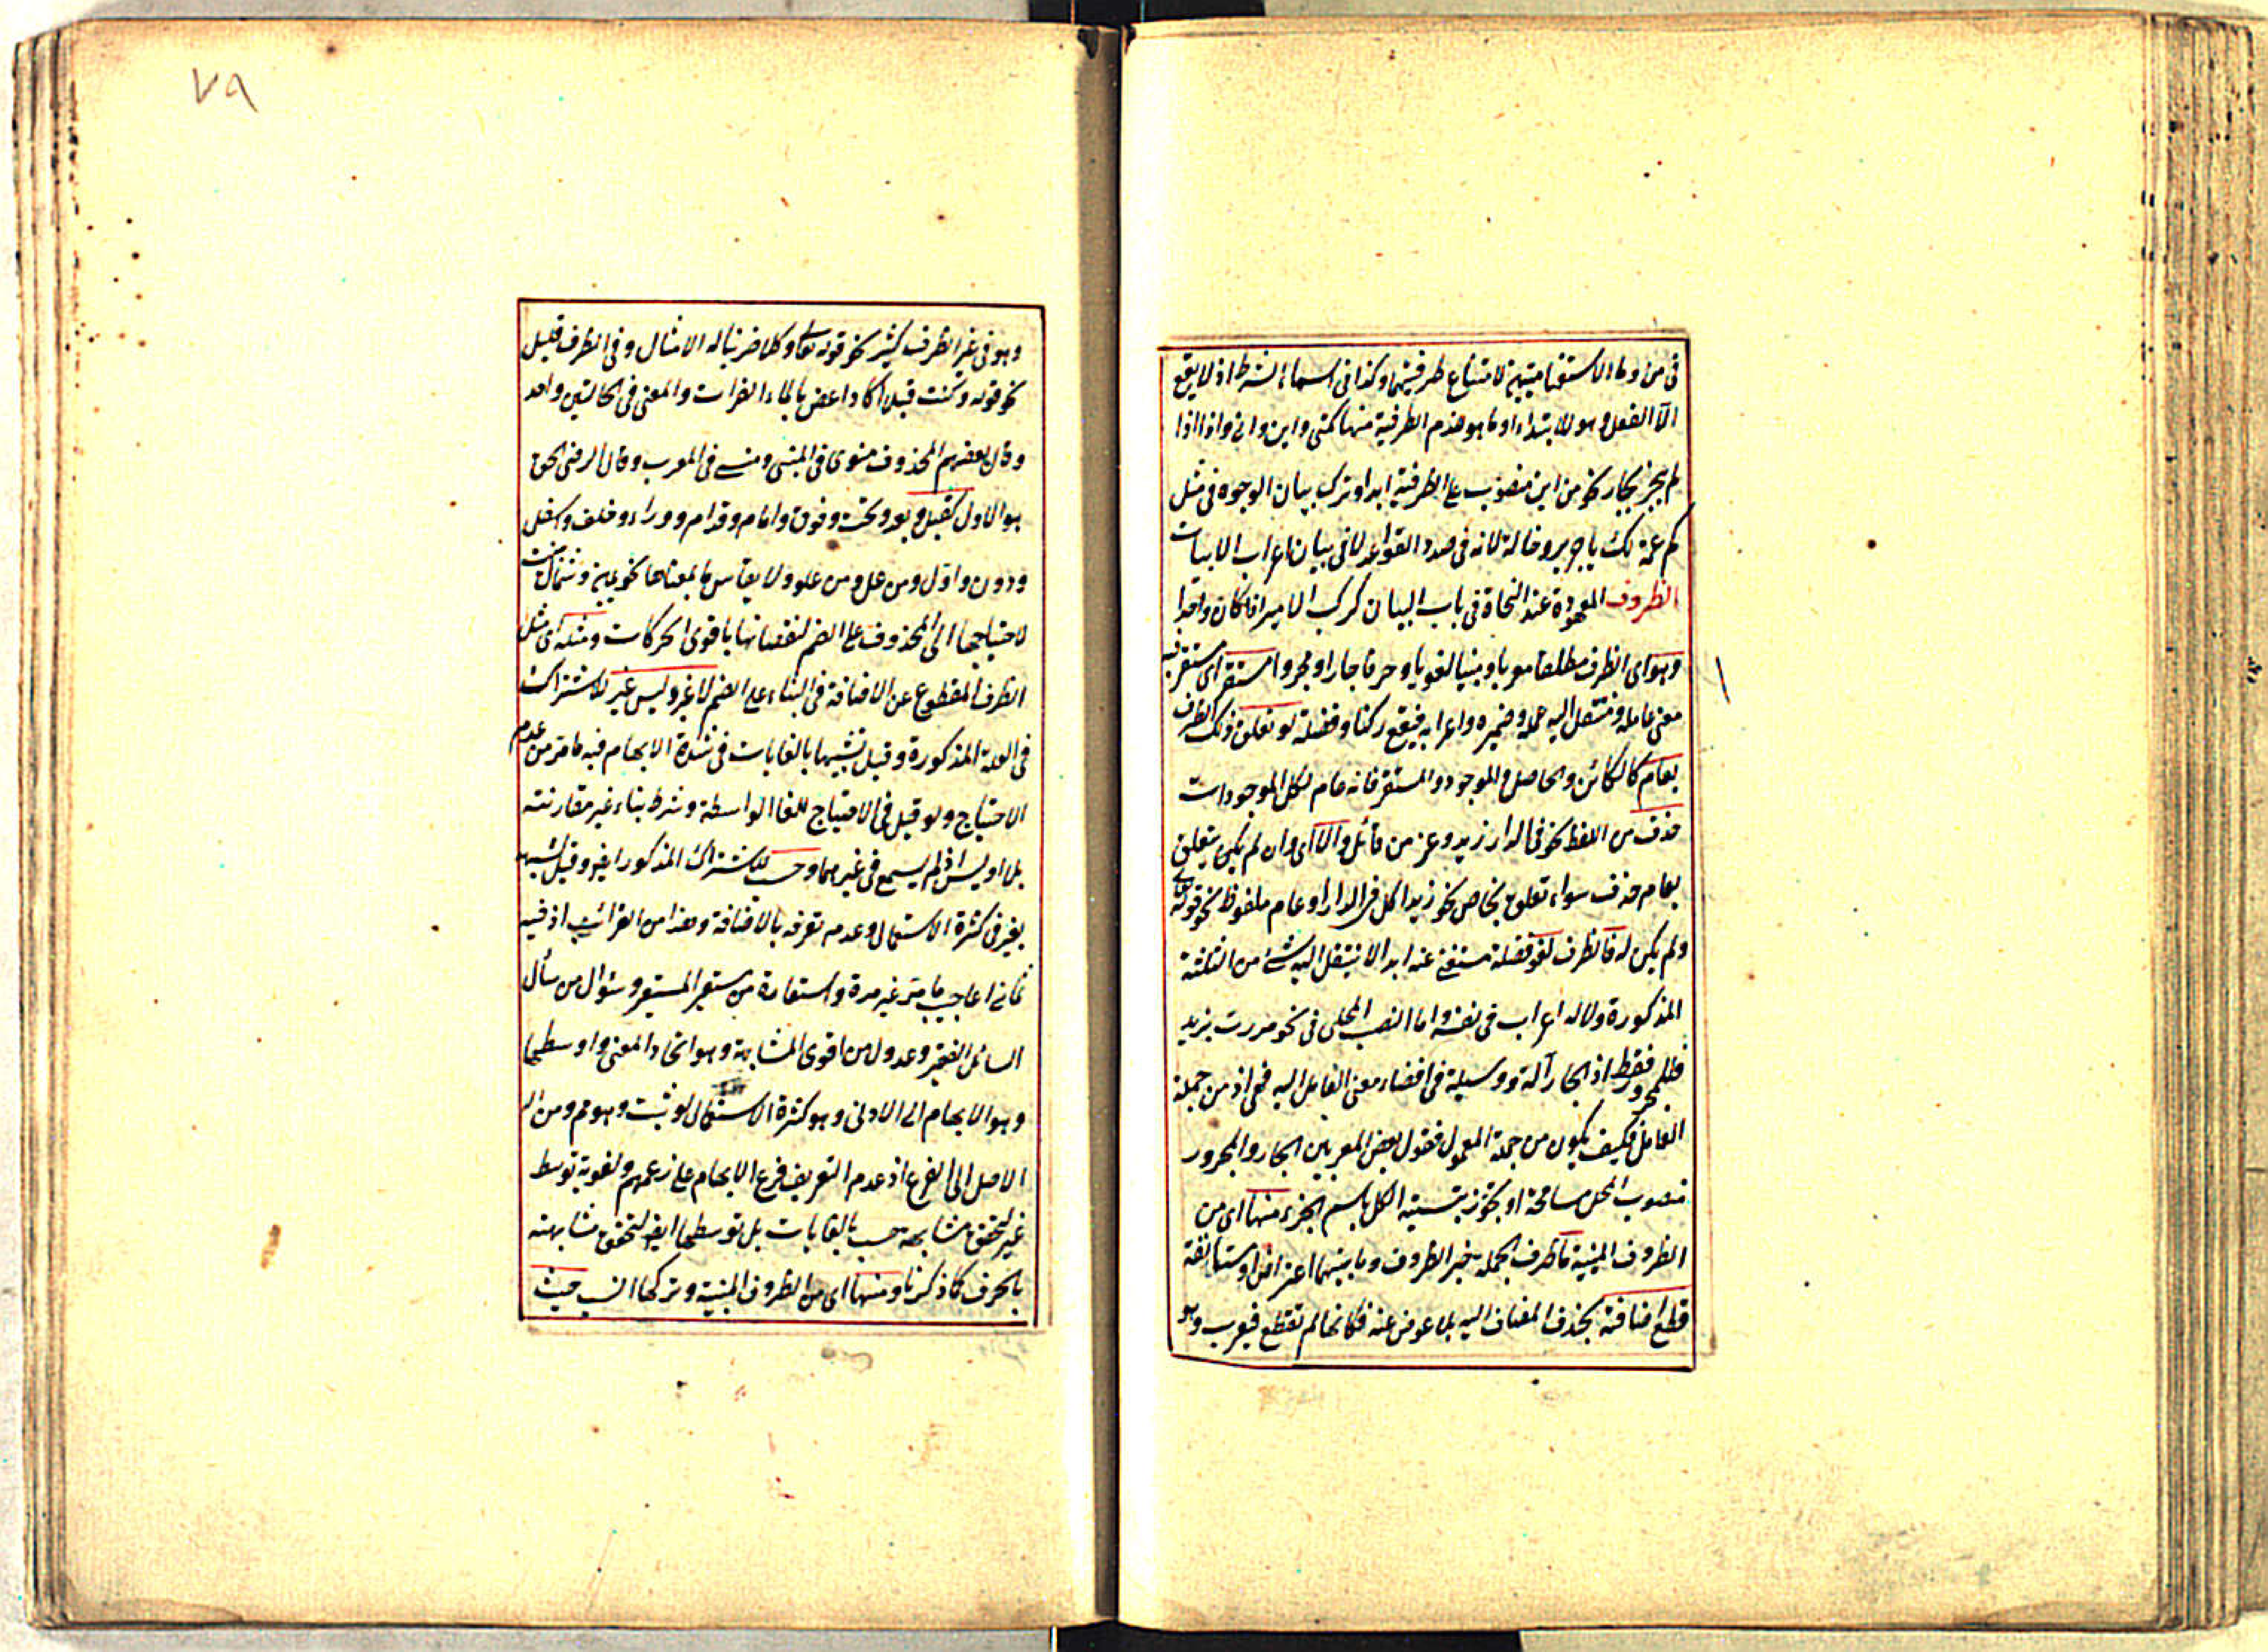 في من وما الاستفهاميتين لامتناع ظرفيتهما وكذا في اسماء الشرط اذ لا يقع
الا الفعل وهو للابتداء او ما هو فيه الظرفية منها كمتى واين وانى واذا اذا
لم ينجر بجار نحو من اين منصوب على الظرفية ابدا وترك بيان الوجوه في مثل
كم عمة لك يا جرير وخالة لانه في صدد القواعد لا في بيان اعراب الابيات
الظروف المعهودة عند النحاة في باب البيان كركب الامير اذا كان واحدا
وهو اي الظرف مطلقا معربا ومبنيا لغويا وحرفا جارا ومجرورا مستقر اي مستقر فيه
معنى عامله ومنتقل اليه عمله وضميره واعرابه فيقع ركنا وفضلة لو تعلق ذلك الظرف
بعام كالكائن والحاصل والموجود والمستقر فانه عام لكل الموجودات
حذف من اللفظ نحو في الدار زيد وعز من قائل والا اي وان لم يكن يتعلق
بعام حذف سواء تعلق بخاص نحو زيد اكل في الدار او عام ملفوظ نحو قوله تعالى
ولم يكن له فالظرف لغو فضلة مستغنى عنه ابدا لا ينتقل اليه شئ من الثلثة
المذكورة ولا له اعراب في نفسه واما النصب المحلى في نحو مررت بزيد
فللمجرور فقط اذ الجار آلة ووسيلة في افضاء معنى العامل اليه فهي اذ من جملة
العامل فكيف يكون من جملة المعمول فقول بعض المعربين الجار والمجرور
منصوب المحل مسامحة او تجوز بتسمية الكل باسم الجزء منها اي من
الظروف المبنية ما ظرف الجملة خبر الظروف وما بينهما اعتراض او مستأنفة
قطع اضافته بحذف المضاف اليه بلا عوض عنه فكأنها لم تقطع فيعرب وهو
٧٩
وهو في غير الظرف كثير نحو قوله تعالى وكلا ضربنا له الامثال وفي الظرف قليل
نحو قوله وكنت قبلا اكاد اغص بالماء الفرات والمعنى في الحالتين واحد
وقال بعضهم المحذوف منوى في المبنى ومنسى في المعرب وقال الرضى الحق
هو الاول كقبل وبعد وتحت وفوق وامام وقدام ووراء وخلف واسفل
ودون واول ومن عل ومن علو ولا يقاس ما بمعناها نحو يمين وشمال بنيت
لاحتياجها الى المحذوف على الضم لنقصانها باقوى الحركات ومثله اي مثل
الظرف المقطوع عن الاضافة في البناء على الضم لا غير وليس غير للاشتراك
في العلة المذكورة وقيل تشبيها بالغايات في شدة الابهام فيه ما مر من عدم
الاحتياج ولو قيل في الاحتياج للغا الواسطة وشرط بناء غير مقارنته
بلا او ليس اذ لم يسمع في غيرهما وحسب للاشتراك المذكور ايضا وقيل لشبهه
بغير في كثرة الاستعمال وعدم تعرفه بالاضافة وهذا من الغرائب اذ فيه
ثماني اعاجيب ما مر غير مرة واستعارة من مستعير المستعير وسؤال من سأل
السائل الفقير وعدول من اقوى المشابهة وهو اتحاد المعنى واوسطها
وهو الابهام الى الادنى وهو كثرة الاستعمال لو ثبت وهو مم ومن ال
الاصل الى الفرع اذ عدم التعريف فرع الابهام على زعمهم ولغوية توسط
غير لتحقق مشابهة حسب بالغايات بل توسطها ايضا لتحقق مشابهته
بالحرف كما ذكرنا ومنها اي من الظروف المبنية وتركها انسب حيث